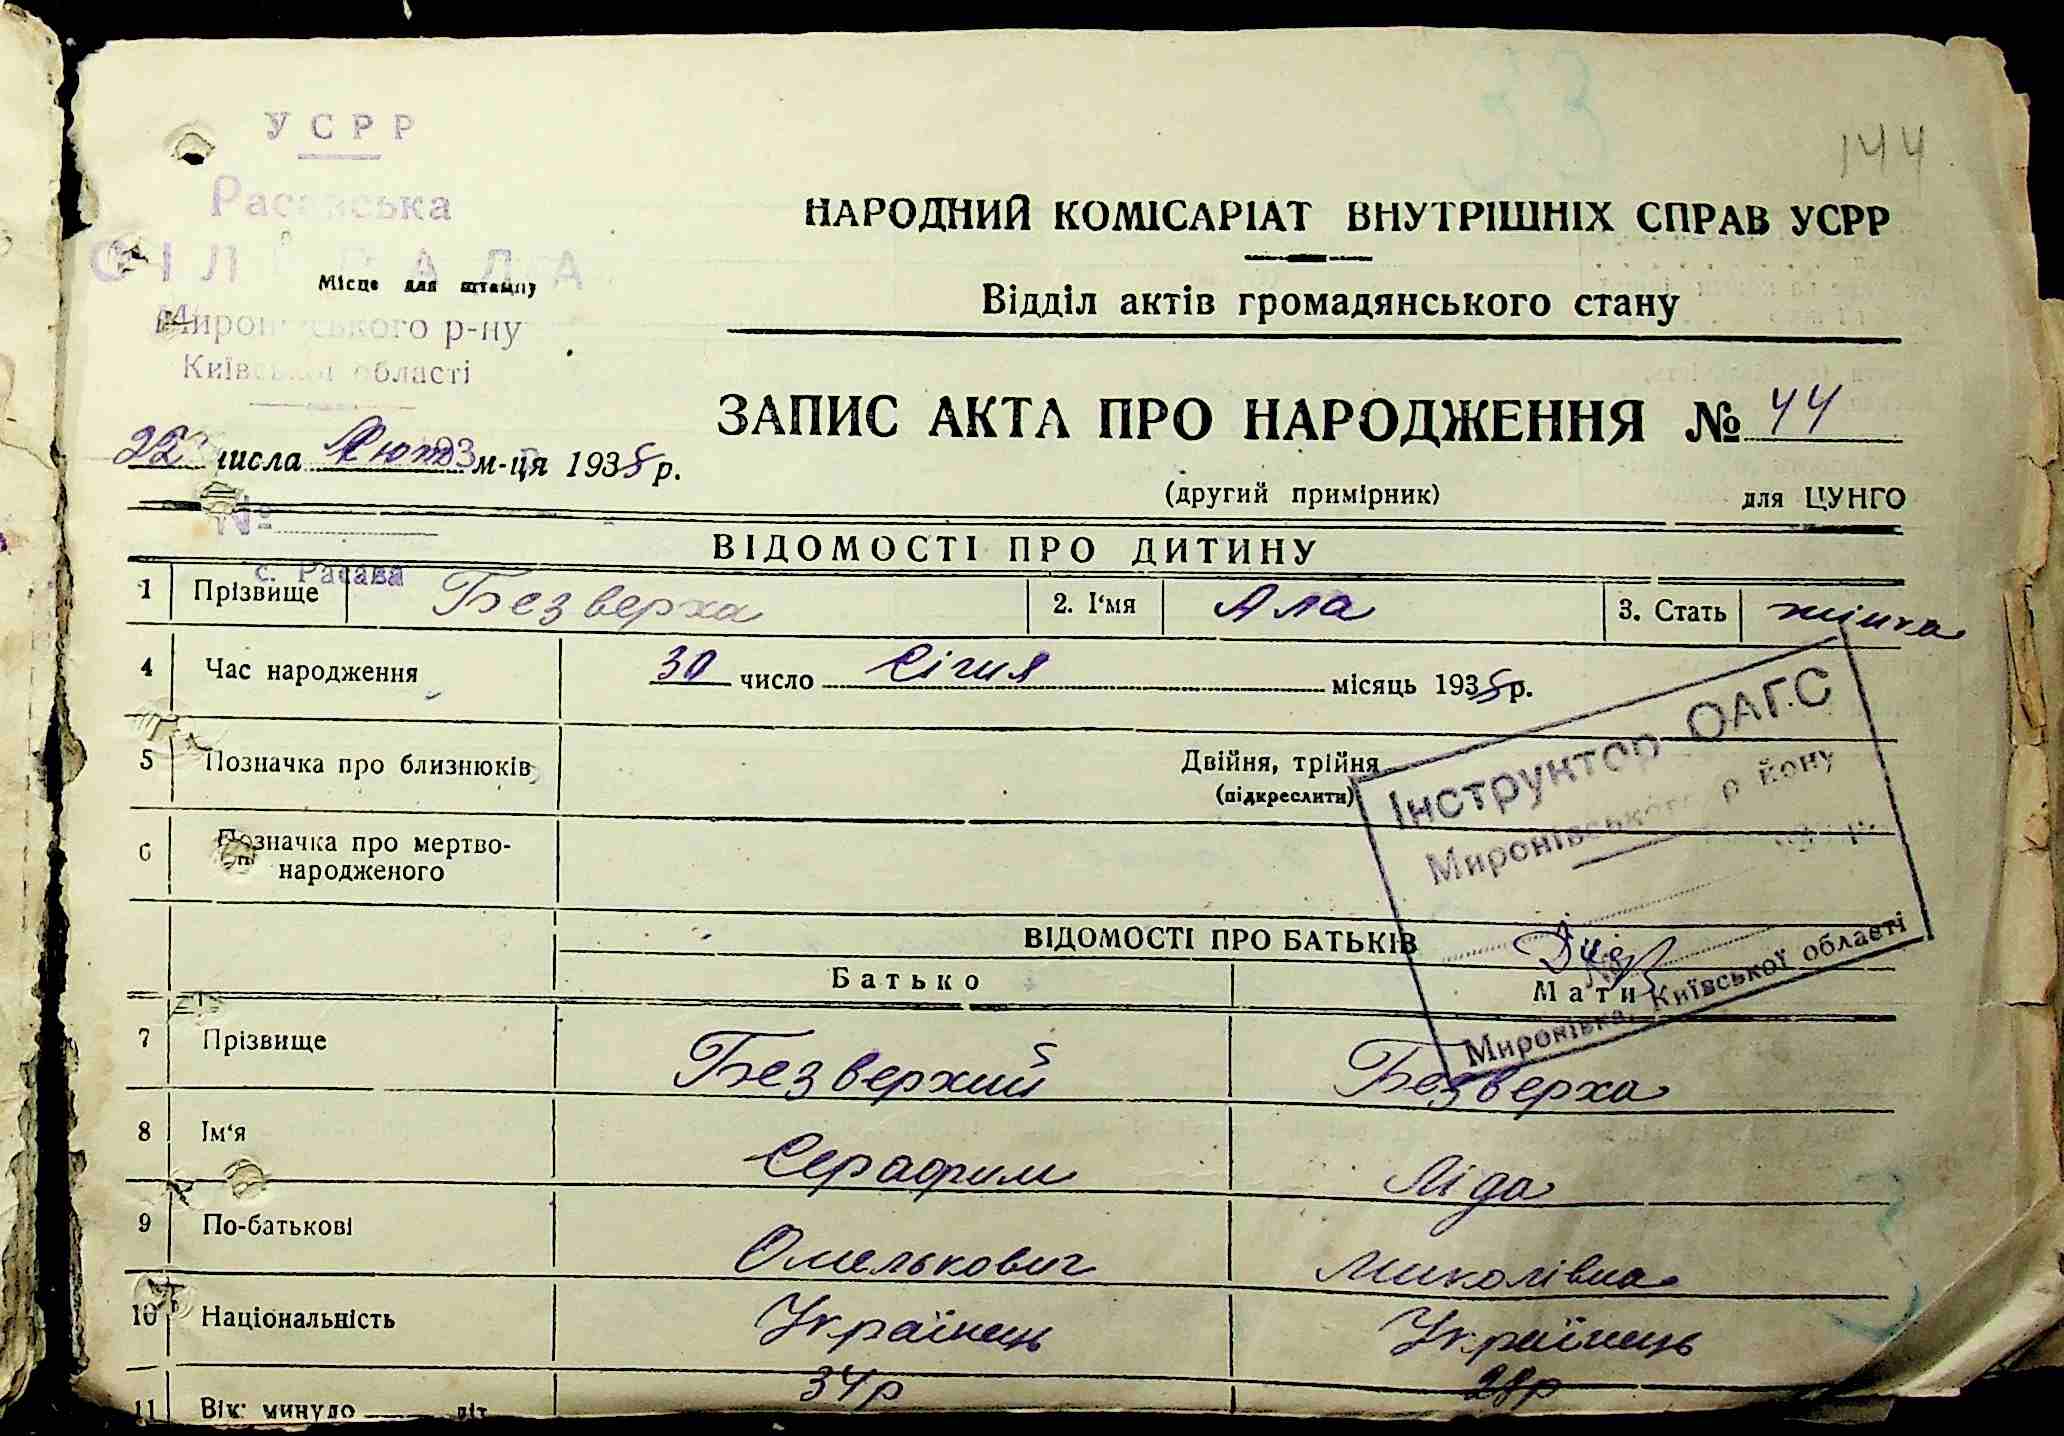 33
144
УСРР
Расавська
СІЛЬРАДА
Місце для штампу
Миронівського р-ну
Київської області
НАРОДНИЙ КОМІСАРІАТ ВНУТРІШНІХ СПРАВ УСРР
Відділ актів громадянського стану
ЗАПИС АКТА ПРО НАРОДЖЕННЯ № 44
22 числа Лют м-ця 1935 р.
(другий примірник) для ЦУНГО
№
с. Расава
ВІДОМОСТІ ПРО ДИТИНУ
1 Прізвище Безверха 2. І'мя Ала 3. Стать жінка
4 Час народження 30 число Січня місяць 1935 р.
5 Позначка про близнюків Двійня, трійня
(підкреслити)
6 Позначка про мертво-
народженого
Інструктор ОАГС
Миронівського району
№
Миронівка, Київської області
ВІДОМОСТІ ПРО БАТЬКІВ
Батько Мати
7 Прізвище Безверхий Безверха
8 Ім'я Серафим Ліда
9 По-батькові Омелькович Миколівна
10 Національність Українець Українець
11 Вік: минуло літ 34р 28р